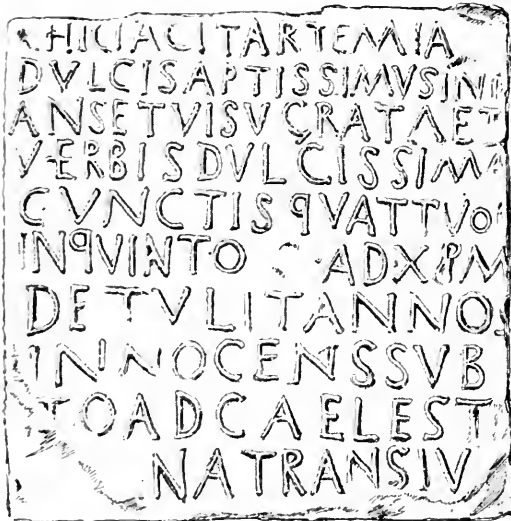 HICIACITARTEMIA
DVLCISAPTISSIMVSINF
ANSETVISVGRATAET
VERBISDVLCISSIMA
CVNCTISqVATTVOR
INqVINTO ADXPM
DETVLITANNOS
INNOCENSSVB
TOADCAELEST
NATRANSIV